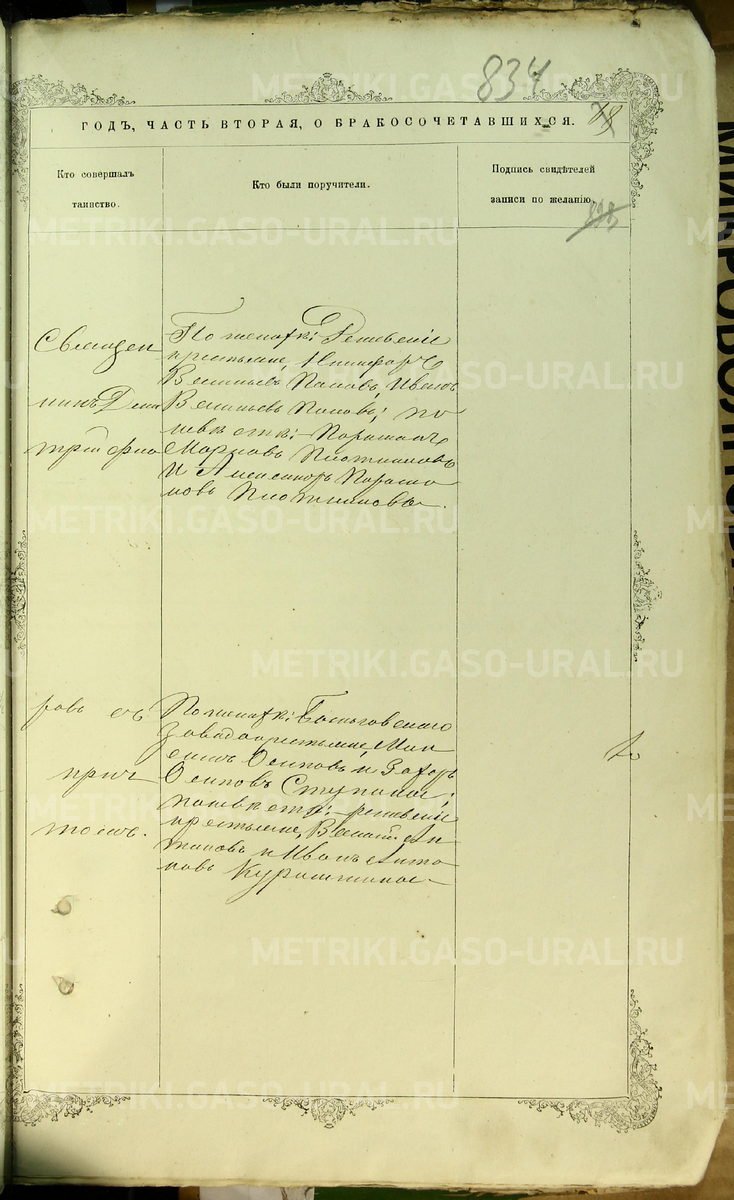 834
ГОДЪ, ЧАСТЬ ВТОРАЯ, О БРАКОСОЧЕТАВШИХСЯ.
Кто совершалъ
таинство.
Кто были поручители.
Подпись свидѣтелей
записи по желанію.
Священ
никъ Дми
трій
По женихѣ: Решевскіе
крестьяне, Никифоръ
Васильевъ Поповъ, Иванъ
Васильевъ Поповъ; по
невѣстѣ:
Марковъ Плотниковъ
и Александръ
Плотниковъ.
ровъ съ
прич
томъ.
По женихѣ:
Завода крестьяне,
Осиповъ и Захаръ
Осиповъ Ступины;
по невѣстѣ: режевскіе
крестьяне, Василій Ан
типовъ и Иванъ Анти
повъ
METRIKI.GASO-URAL.RU